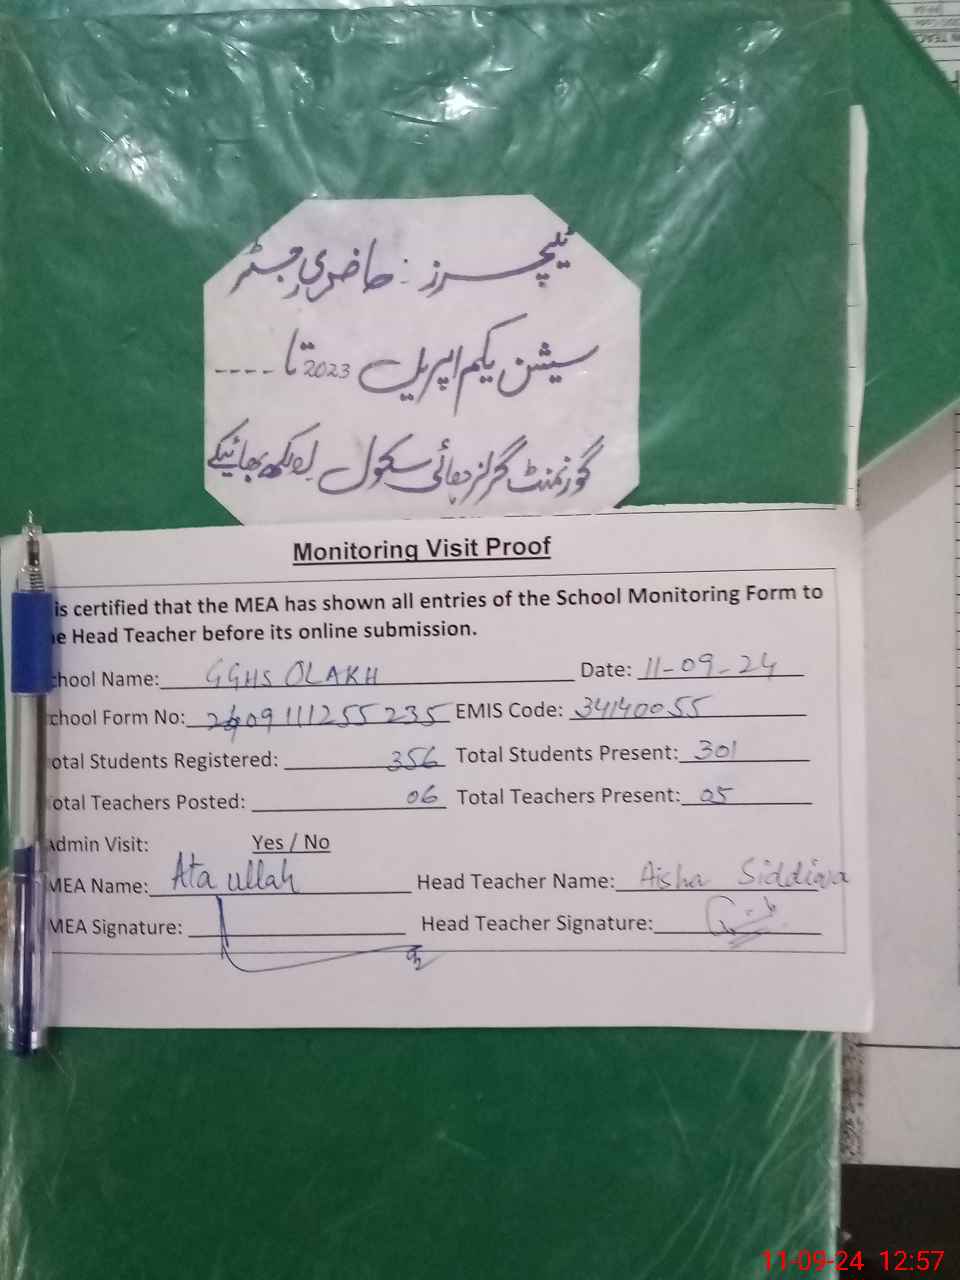 ٹیچرز : حاضری رجسٹر
سیشن یکم اپریل 2023 تا ----
گورنمنٹ گرلز ہائی سکول اولکھ بھائیکے
Monitoring Visit Proof
is certified that the MEA has shown all entries of the School Monitoring Form to
e Head Teacher before its online submission.
chool Name: GGHS OLAKH Date: 11-09-24
chool Form No: 2409111255235 EMIS Code: 34140055
otal Students Registered: 356 Total Students Present: 301
otal Teachers Posted: 06 Total Teachers Present: 05
Admin Visit: Yes / No
MEA Name: Ata ullah Head Teacher Name: Aisha Siddiqa
MEA Signature: Head Teacher Signature:
11-09-24 12:57